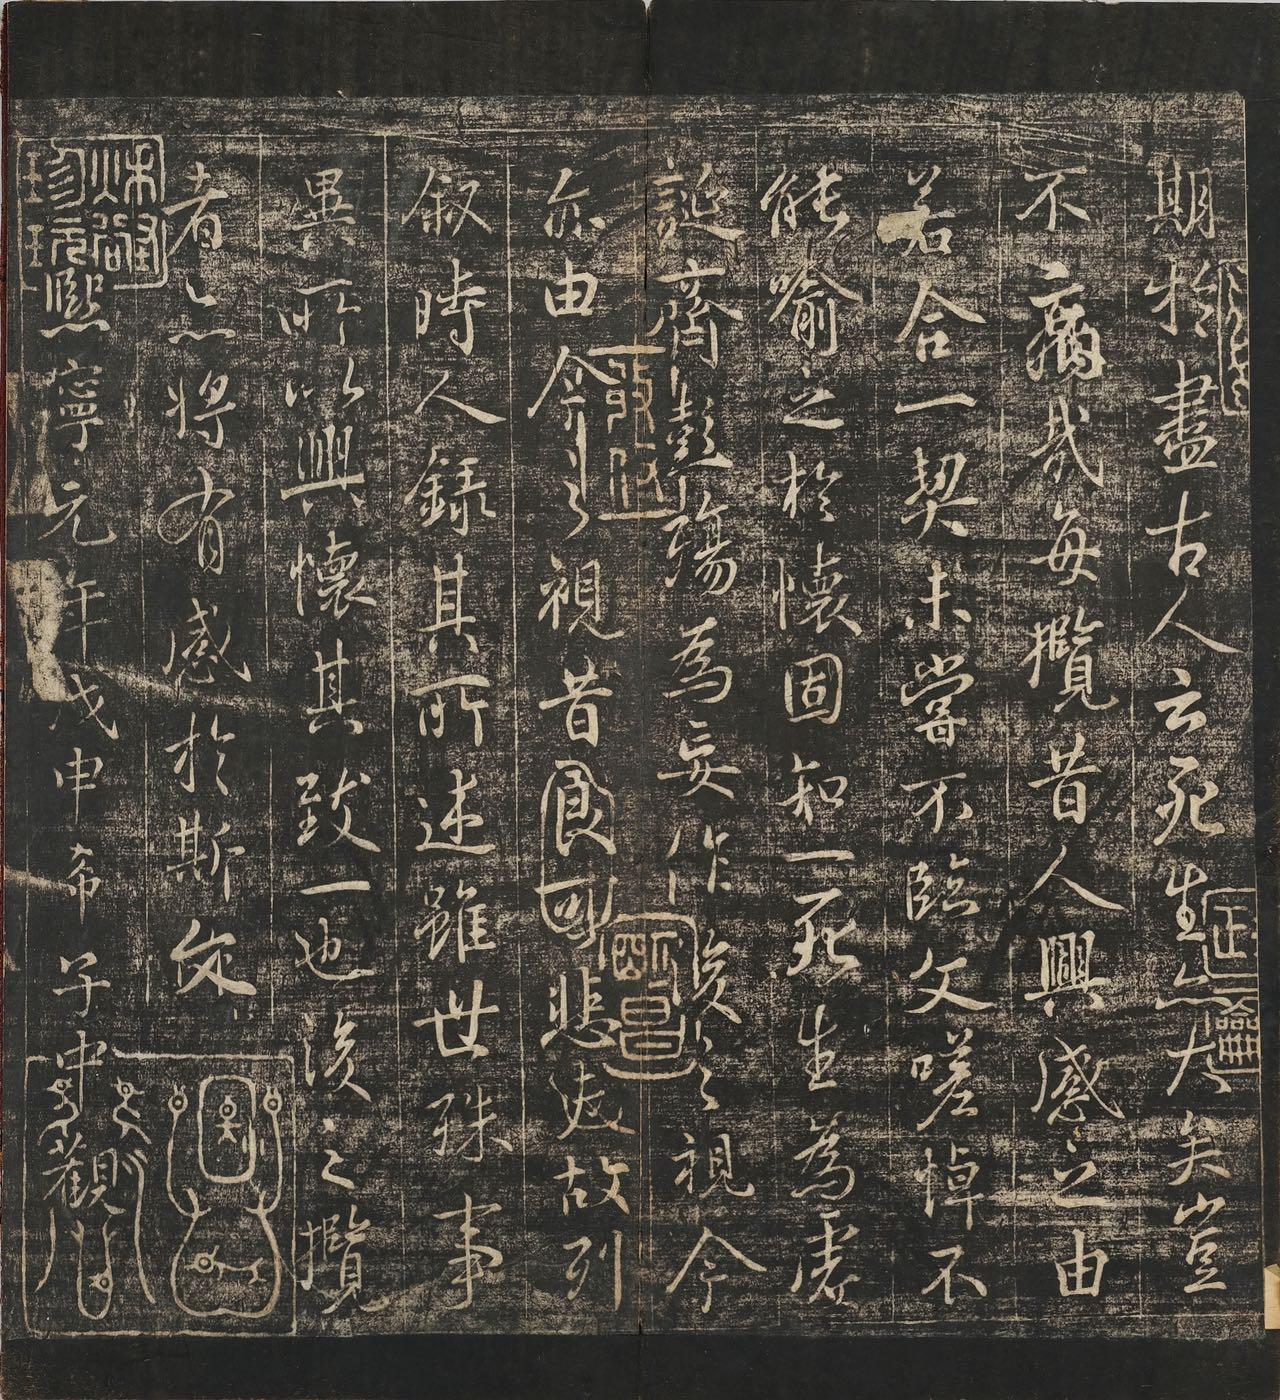 期於盡古人云死生亦大矣豈
不痛哉每攬昔人興感之由
若合一契未嘗不臨文嗟悼不
能喻之於懷固知一死生為虛
誕齊彭殤為妄作後之視今
亦由今之視昔悲夫故列
叙時人錄其所述雖世殊事
異所以興懷其致一也後之攬
者亦將有感於斯文
熙寧元年戊申